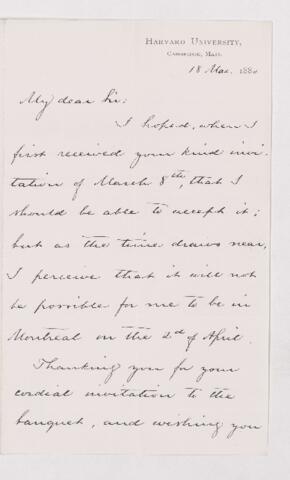 HARVARD UNIVERSITY,
CAMBRIDGE, MASS.
18 Mar. 1880
My dear Sir:
I hoped, when I
first received your kind invi-
tation of March 8th, that I
should be able to accept it;
but as the time draws near,
I perceive that it will not
be possible for me to be in
Montreal on the 2d of April.
Thanking you for your
cordial invitation to the
banquet, and wishing you